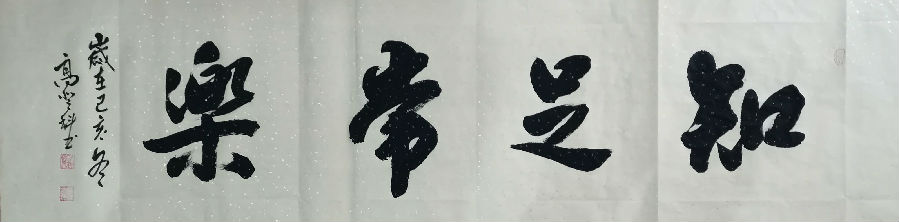 知足常樂
歲在己亥冬
高登科书